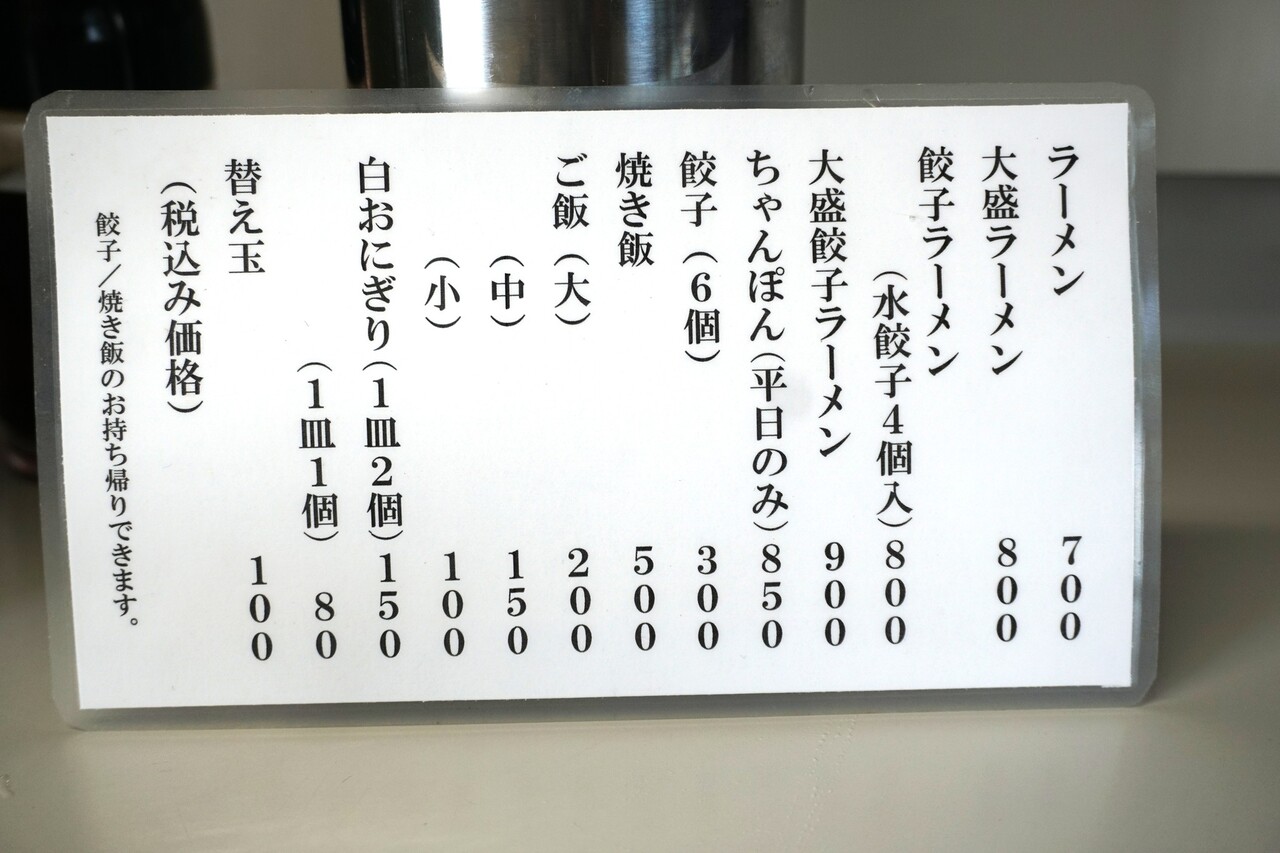 ラーメン 700
大盛ラーメン 800
餃子ラーメン
(水餃子4個入) 800
大盛餃子ラーメン 900
ちゃんぽん(平日のみ) 850
餃子(6個) 300
焼き飯 500
ご飯(大) 200
(中) 150
(小) 100
白おにぎり(1皿2個) 150
(1皿1個) 80
替え玉 100
(税込み価格)
餃子/焼き飯のお持ち帰りできます。